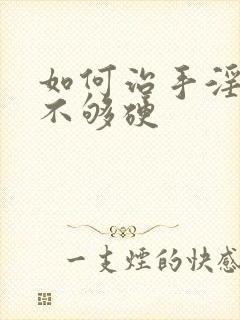 如何治手淫
不够硬
一支煙的快感